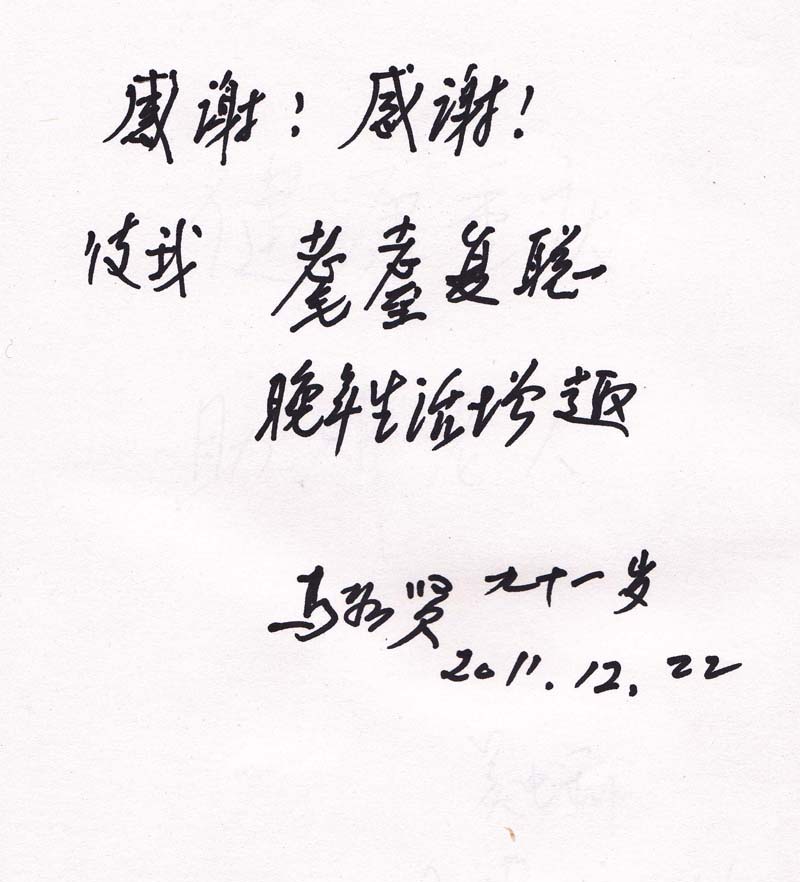 感谢！感谢！
使我 耄耋复聪
晚年生活增趣
马 贤 九十一岁
2011.12.22